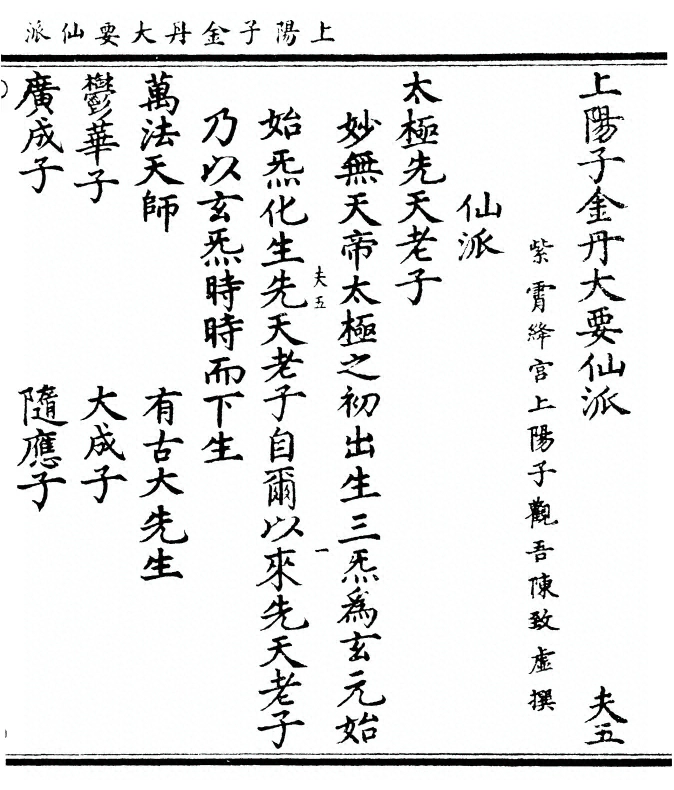 上陽子金丹大要仙派
上陽子金丹大要仙派
夫五
紫霄絳宮上陽子觀吾陳致虛撰
仙派
太極先天老子
妙無天帝太極之初出生三炁爲玄元始
夫五
一
始炁化生先天老子自爾以來先天老子
乃以玄炁時時而下生
萬法天師
有古大先生
鬱華子
大成子
廣成子
隨應子